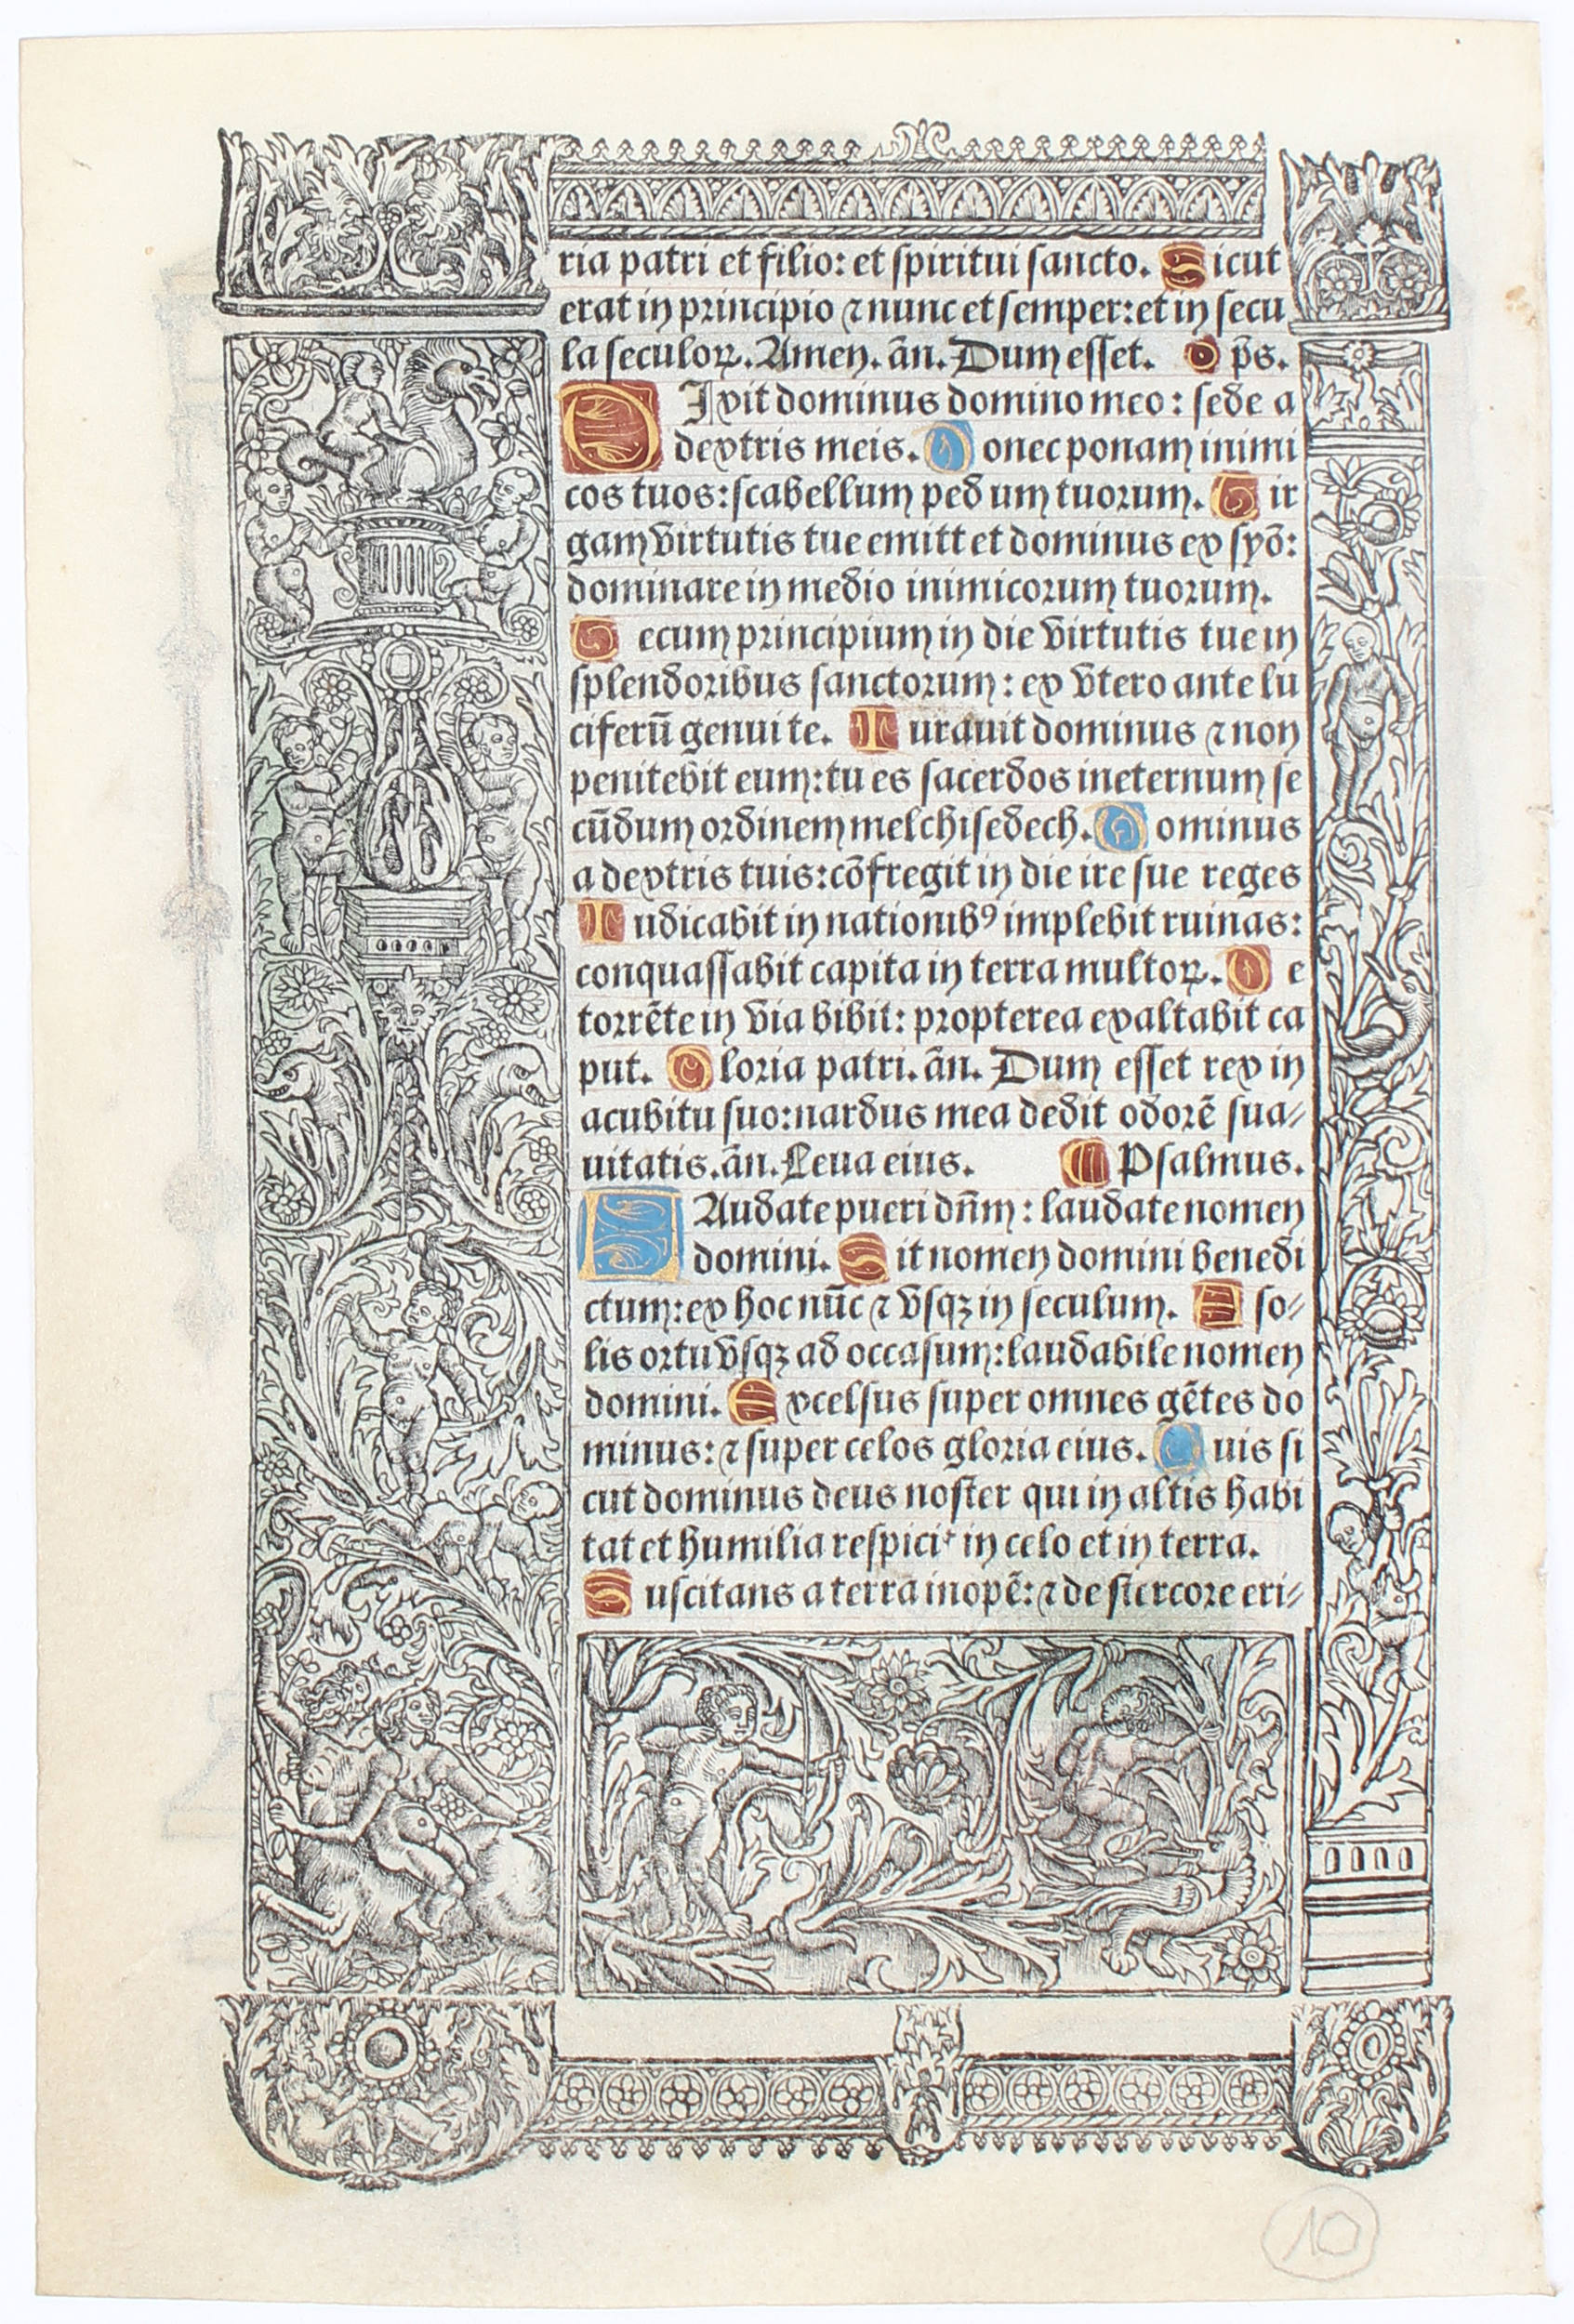 ria patri et filio: et spiritui sancto. Sicut
erat in principio ⁊ nunc et semper: et in secu
la seculoꝝ. Amen. añ. Dum esset. p̄s.
DIxit dominus domino meo: sede a
dextris meis. Donec ponam inimi
cos tuos: scabellum ped um tuorum. Vir
gam virtutis tue emitt et dominus ex syō:
dominare in medio inimicorum tuorum.
Tecum principium in die virtutis tue in
splendoribus sanctorum: ex vtero ante lu
ciferū genui te. Iurauit dominus ⁊ non
penitebit eum: tu es sacerdos in eternum se
cūdum ordinem melchisedech. Dominus
a dextris tuis: cōfregit in die ire sue reges
Iudicabit in nationibꝰ implebit ruinas:
conquassabit capita in terra multoꝝ. De
torrēte in via bibit: propterea exaltabit ca
put. Gloria patri. añ. Dum esset rex in
acubitu suo: nardus mea dedit odorē sua⸗
uitatis. añ. Leua eius. Psalmus.
LAudate pueri dn̄m: laudate nomen
domini. Sit nomen domini benedi
ctum: ex hoc nūc ⁊ vsqꝫ in seculum. A so⸗
lis ortu vsqꝫ ad occasum: laudabile nomen
domini. Excelsus super omnes gētes do
minus: ⁊ super celos gloria eius. Quis si
cut dominus deus noster qui in altis habi
tat et humilia respicit in celo et in terra.
Suscitans a terra inopē: ⁊ de stercore eri⸗
10